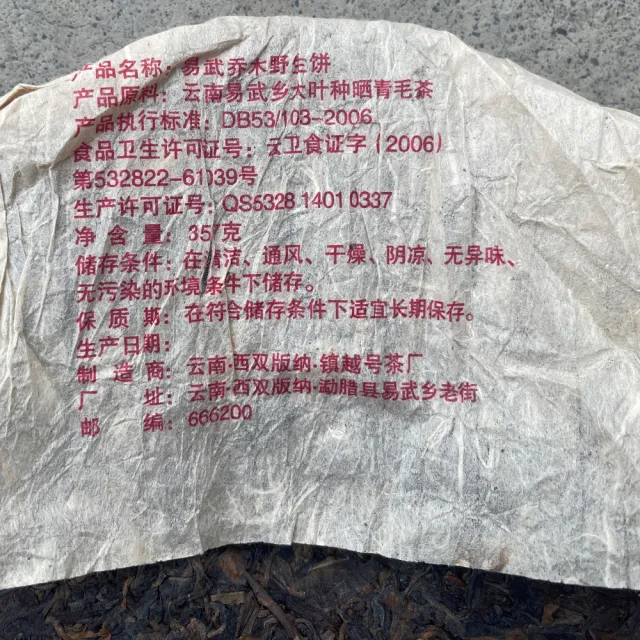 产品名称：易武乔木野生饼
产品原料：云南易武乡大叶种晒青毛茶
产品执行标准：DB53/103-2006
食品卫生许可证号：云卫食证字（2006）
第532822-61039号
生产许可证号：QS5328 1401 0337
净含量：357克
储存条件：在清洁、通风、干燥、阴凉、无异味、
无污染的环境条件下储存。
保质期：在符合储存条件下适宜长期保存。
生产日期：
制造商：云南·西双版纳·镇越号茶厂
厂址：云南·西双版纳·勐腊县易武乡老街
邮编：666200